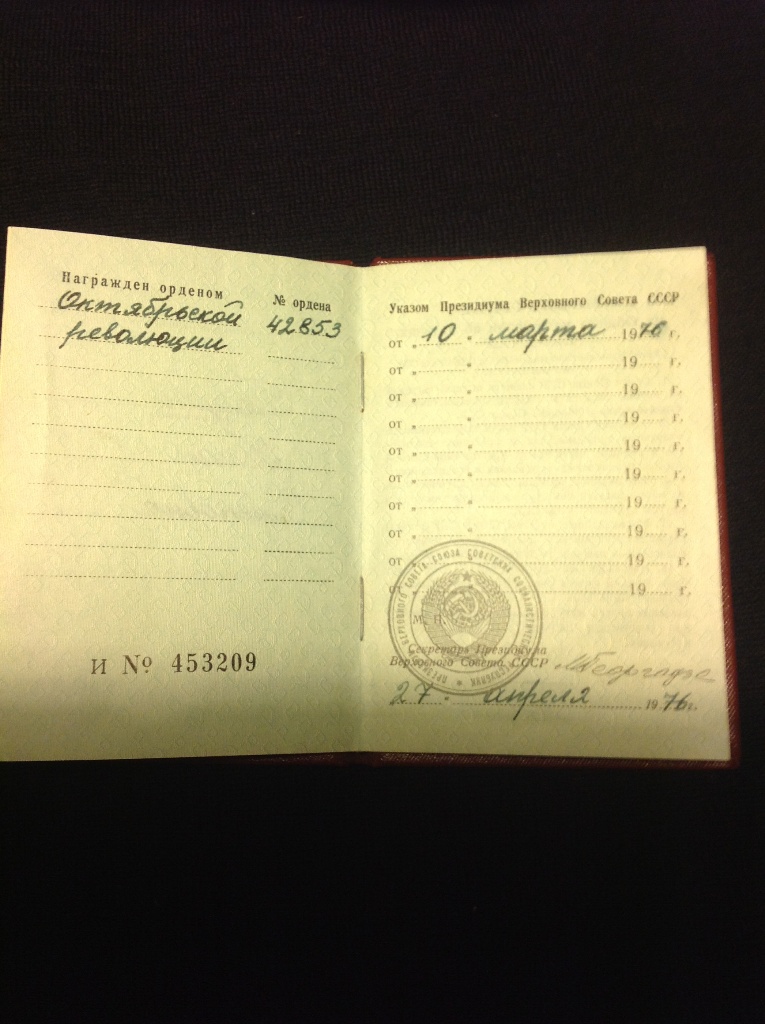 Награжден орденом
№ ордена
Октябрьской
42853
революции
И № 453209
Указом Президиума Верховного Совета СССР
от „ 10 “ марта 1976 г.
от „ “ 19 г.
от „ “ 19 г.
от „ “ 19 г.
от „ “ 19 г.
от „ “ 19 г.
от „ “ 19 г.
от „ “ 19 г.
от „ “ 19 г.
от „ “ 19 г.
М. П.
Секретарь Президиума
Верховного Совета СССР
27 апреля 1976 г.
ПРЕЗИДИУМ ВЕРХОВНОГО СОВЕТА СОЮЗА СОВЕТСКИХ СОЦИАЛИСТИЧЕСКИХ РЕСПУБЛИК